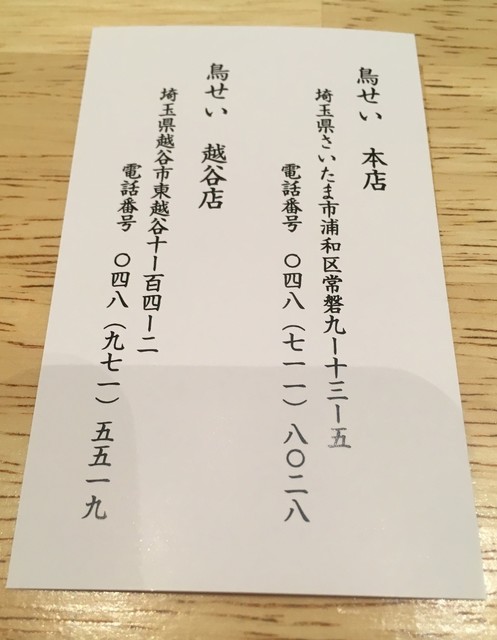 鳥せい　本店
埼玉県さいたま市浦和区常磐九ー十三ー五
電話番号　〇四八（七一一）八〇二八
鳥せい　越谷店
埼玉県越谷市東越谷十ー百四ー二
電話番号　〇四八（九七一）五五一九